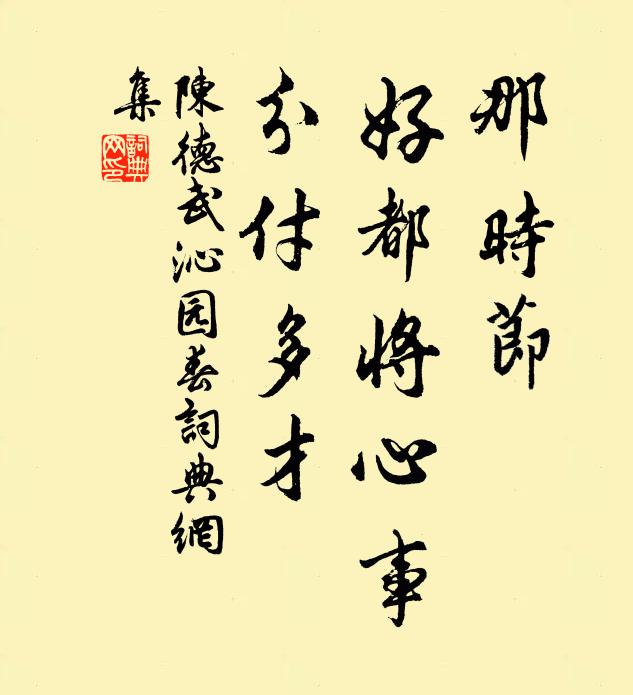 那時節
好都將心事
分付多才
陳德武沁园春詞典網
集
詞典網印